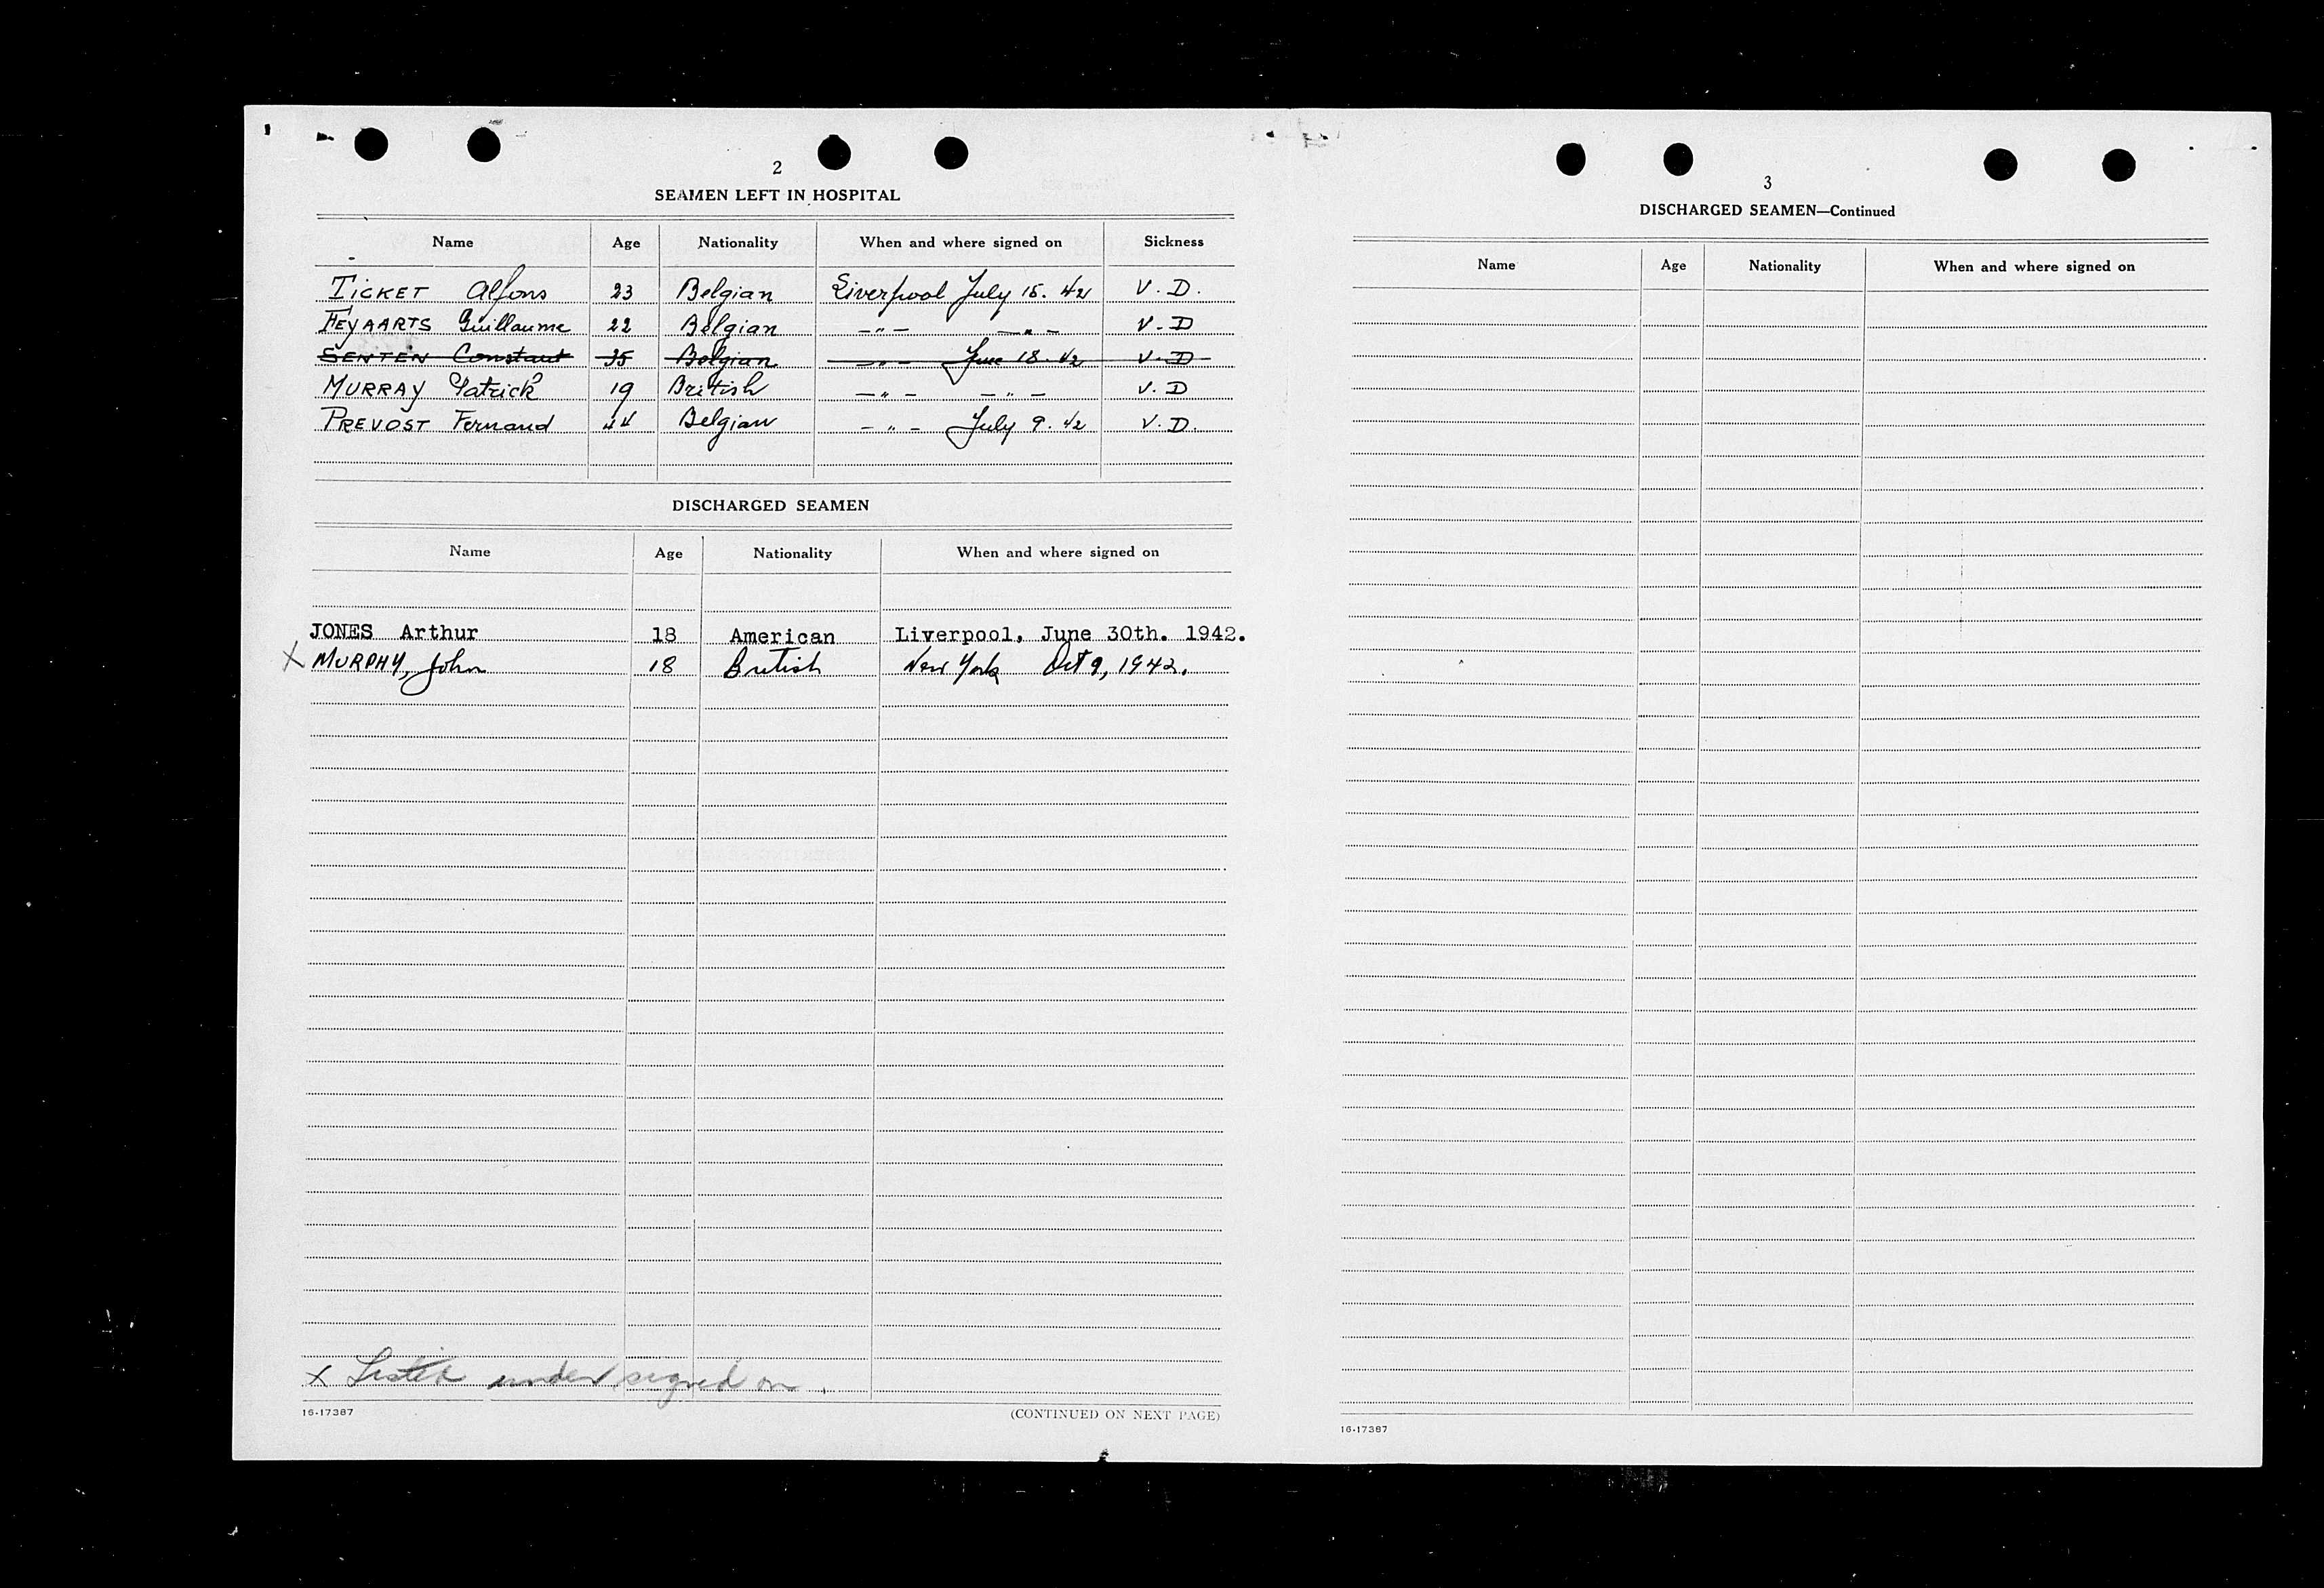 2
SEAMEN LEFT IN HOSPITAL
Name Age Nationality When and where signed on Sickness
TICKET Alfons 23 Belgian Liverpool July 15. 42 V. D.
FEYAARTS Guillaume 22 Belgian -"- -"- V. D
SENTEN Constant 35 Belgian -"- June 18. 42 V. D
MURRAY Patrick 19 British -"- -"- V. D
PREVOST Fernand 44 Belgian -"- July 9. 42 V. D.
DISCHARGED SEAMEN
Name Age Nationality When and where signed on
JONES Arthur 18 American Liverpool, June 30th. 1942.
X MURPHY, John 18 British New York Oct 9, 1942.
X Listed under signed on.
16-17387 (CONTINUED ON NEXT PAGE)
3
DISCHARGED SEAMEN—Continued
Name Age Nationality When and where signed on
16-17387